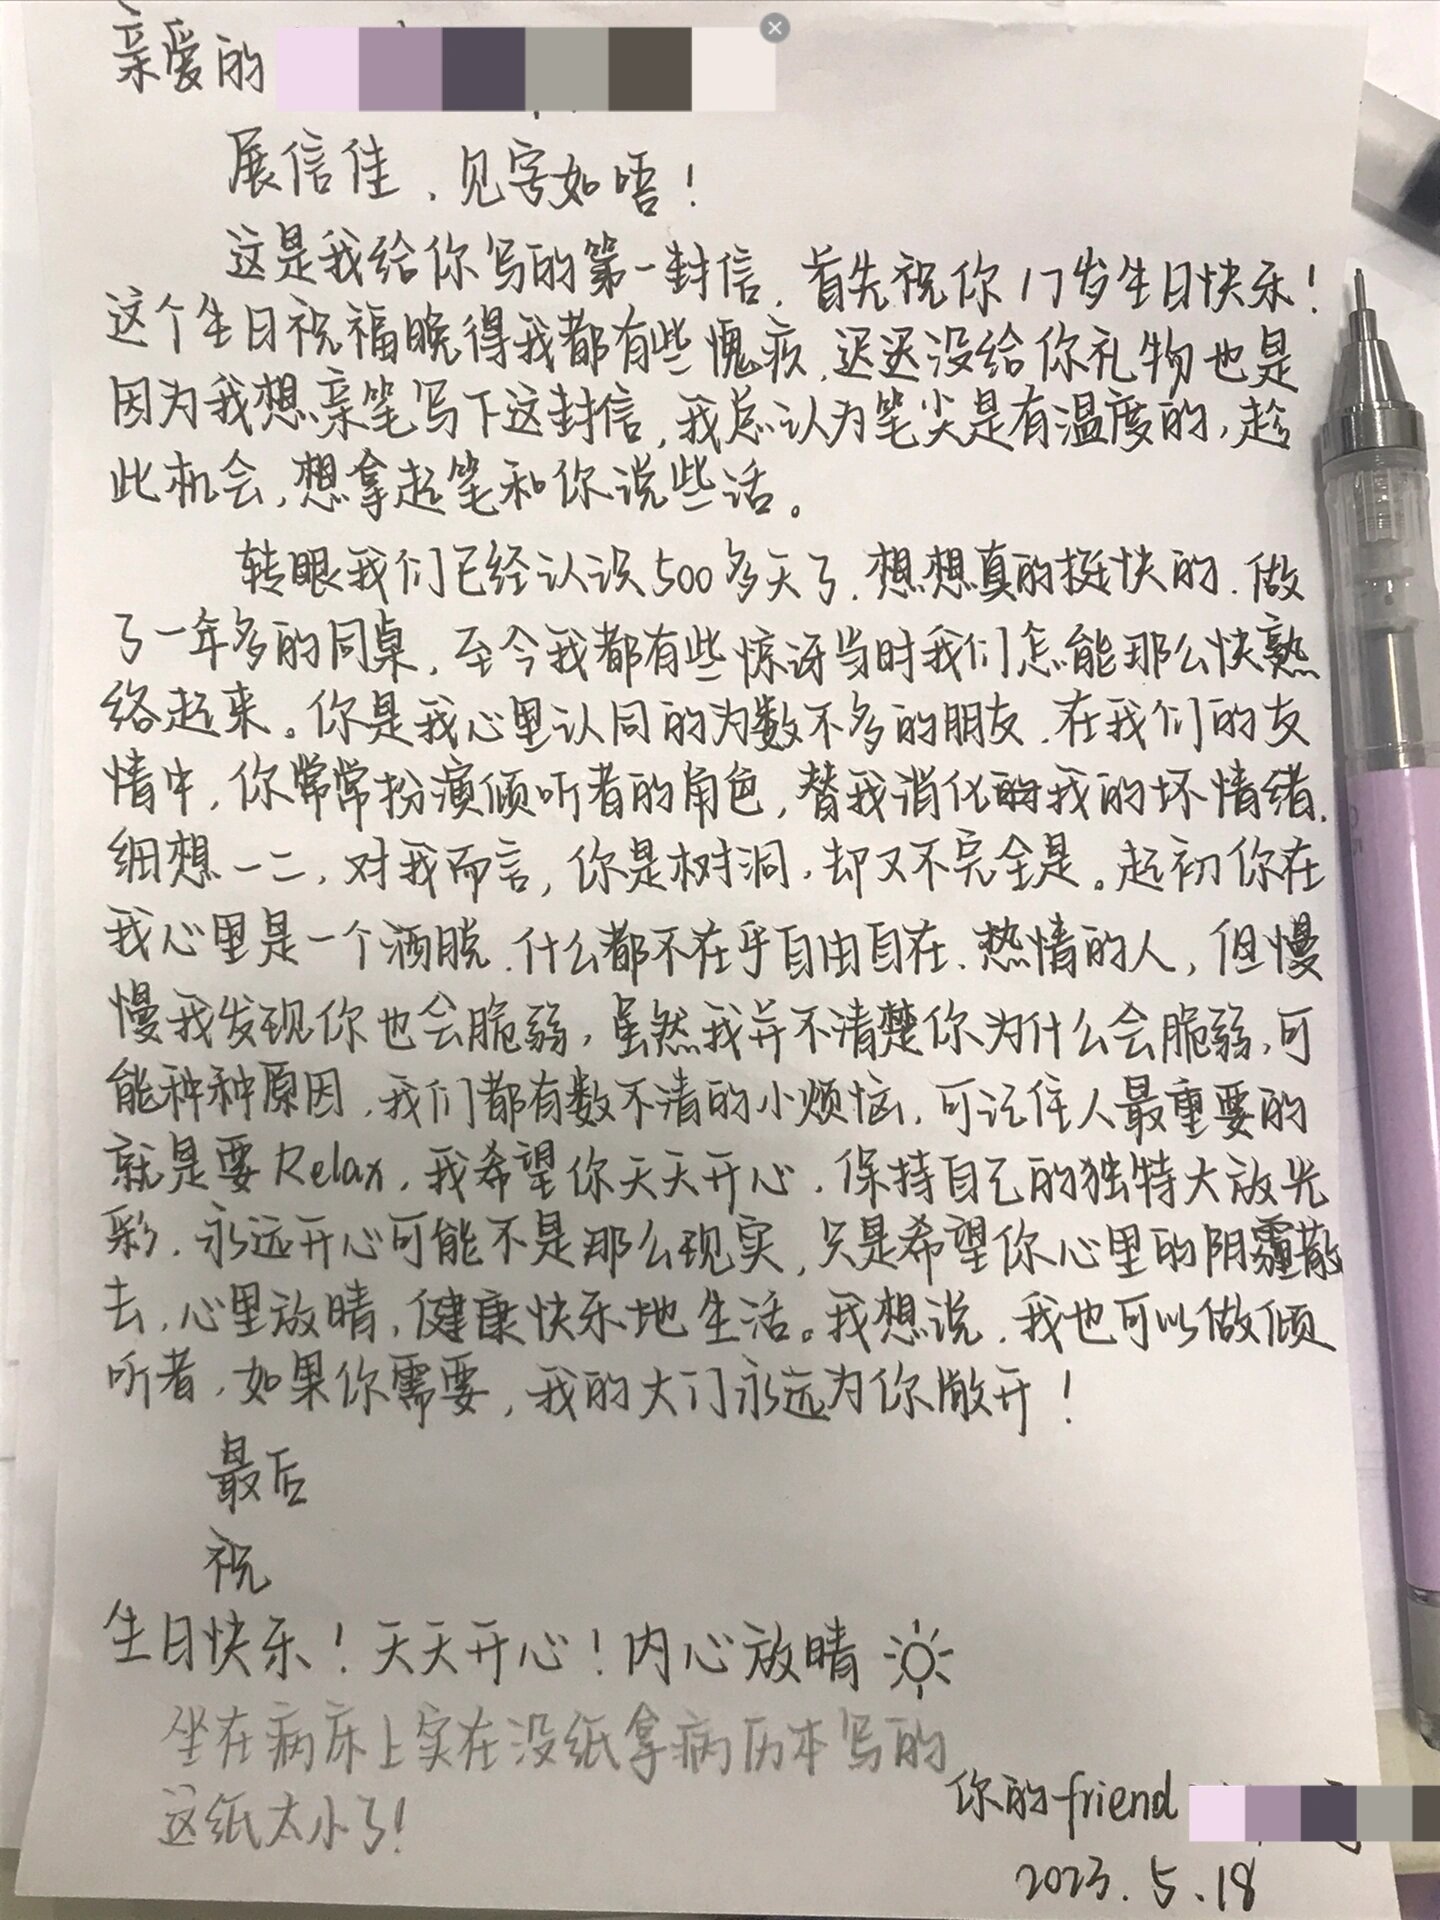 亲爱的
展信佳，见字如唔！
这是我给你写的第一封信，首先祝你17岁生日快乐！
这个生日祝福晚得我都有些愧疚，迟迟没给你礼物也是
因为我想亲笔写下这封信，我总认为笔尖是有温度的，趁
此机会，想拿起笔和你说些话。
转眼我们已经认识500多天了，想想真的挺快的，做
了一年多的同桌，至今我都有些惊讶当时我们怎能那么快熟
络起来。你是我心里认同的为数不多的朋友，在我们的友
情中，你常常扮演倾听者的角色，替我消化我的坏情绪，
细想一二，对我而言，你是树洞，却又不完全是。起初你在
我心里是一个洒脱，什么都不在乎自由自在、热情的人，但慢
慢我发现你也会脆弱，虽然我并不清楚你为什么会脆弱，可
能种种原因，我们都有数不清的小烦恼，可记住人最重要的
就是要Relax，我希望你天天开心，保持自己的独特大放光
彩，永远开心可能不是那么现实，只是希望你心里的阴霾散
去，心里放晴，健康快乐地生活。我想说，我也可以做倾
听者，如果你需要，我的大门永远为你敞开！
最后
祝
生日快乐！天天开心！内心放晴
坐在病床上实在没纸拿病历本写的
这纸太小了！
你的friend
2023.5.18